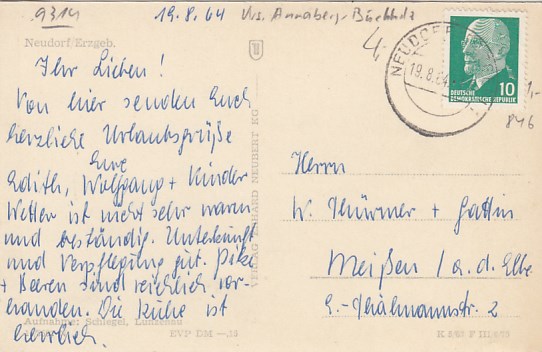 9314
19.8.64 Krs. Annaberg-Buchholz
4,
1,-
846
Neudorf/Erzgeb.
NEUDORF
19.8.64
DEUTSCHE
DEMOKRATISCHE REPUBLIK
10
Ihr Lieben!
Von hier senden Euch
herzliche Urlaubsgrüße
Eure
Edith, Wolfgang + Kinder
Wetter ist nicht sehr warm
und beständig. Unterkunft
und Verpflegung gut. Pilze
+ Beeren sind reichlich vor-
handen. Die Küche ist
herrlich.
Herrn
W. Thürmer + Gattin
Meißen / a. d. Elbe
E.-Thälmannstr. 2
VERLAG ERHARD NEUBERT KG
Aufnahme: Schlegel, Lunzenau
EVP DM -,38